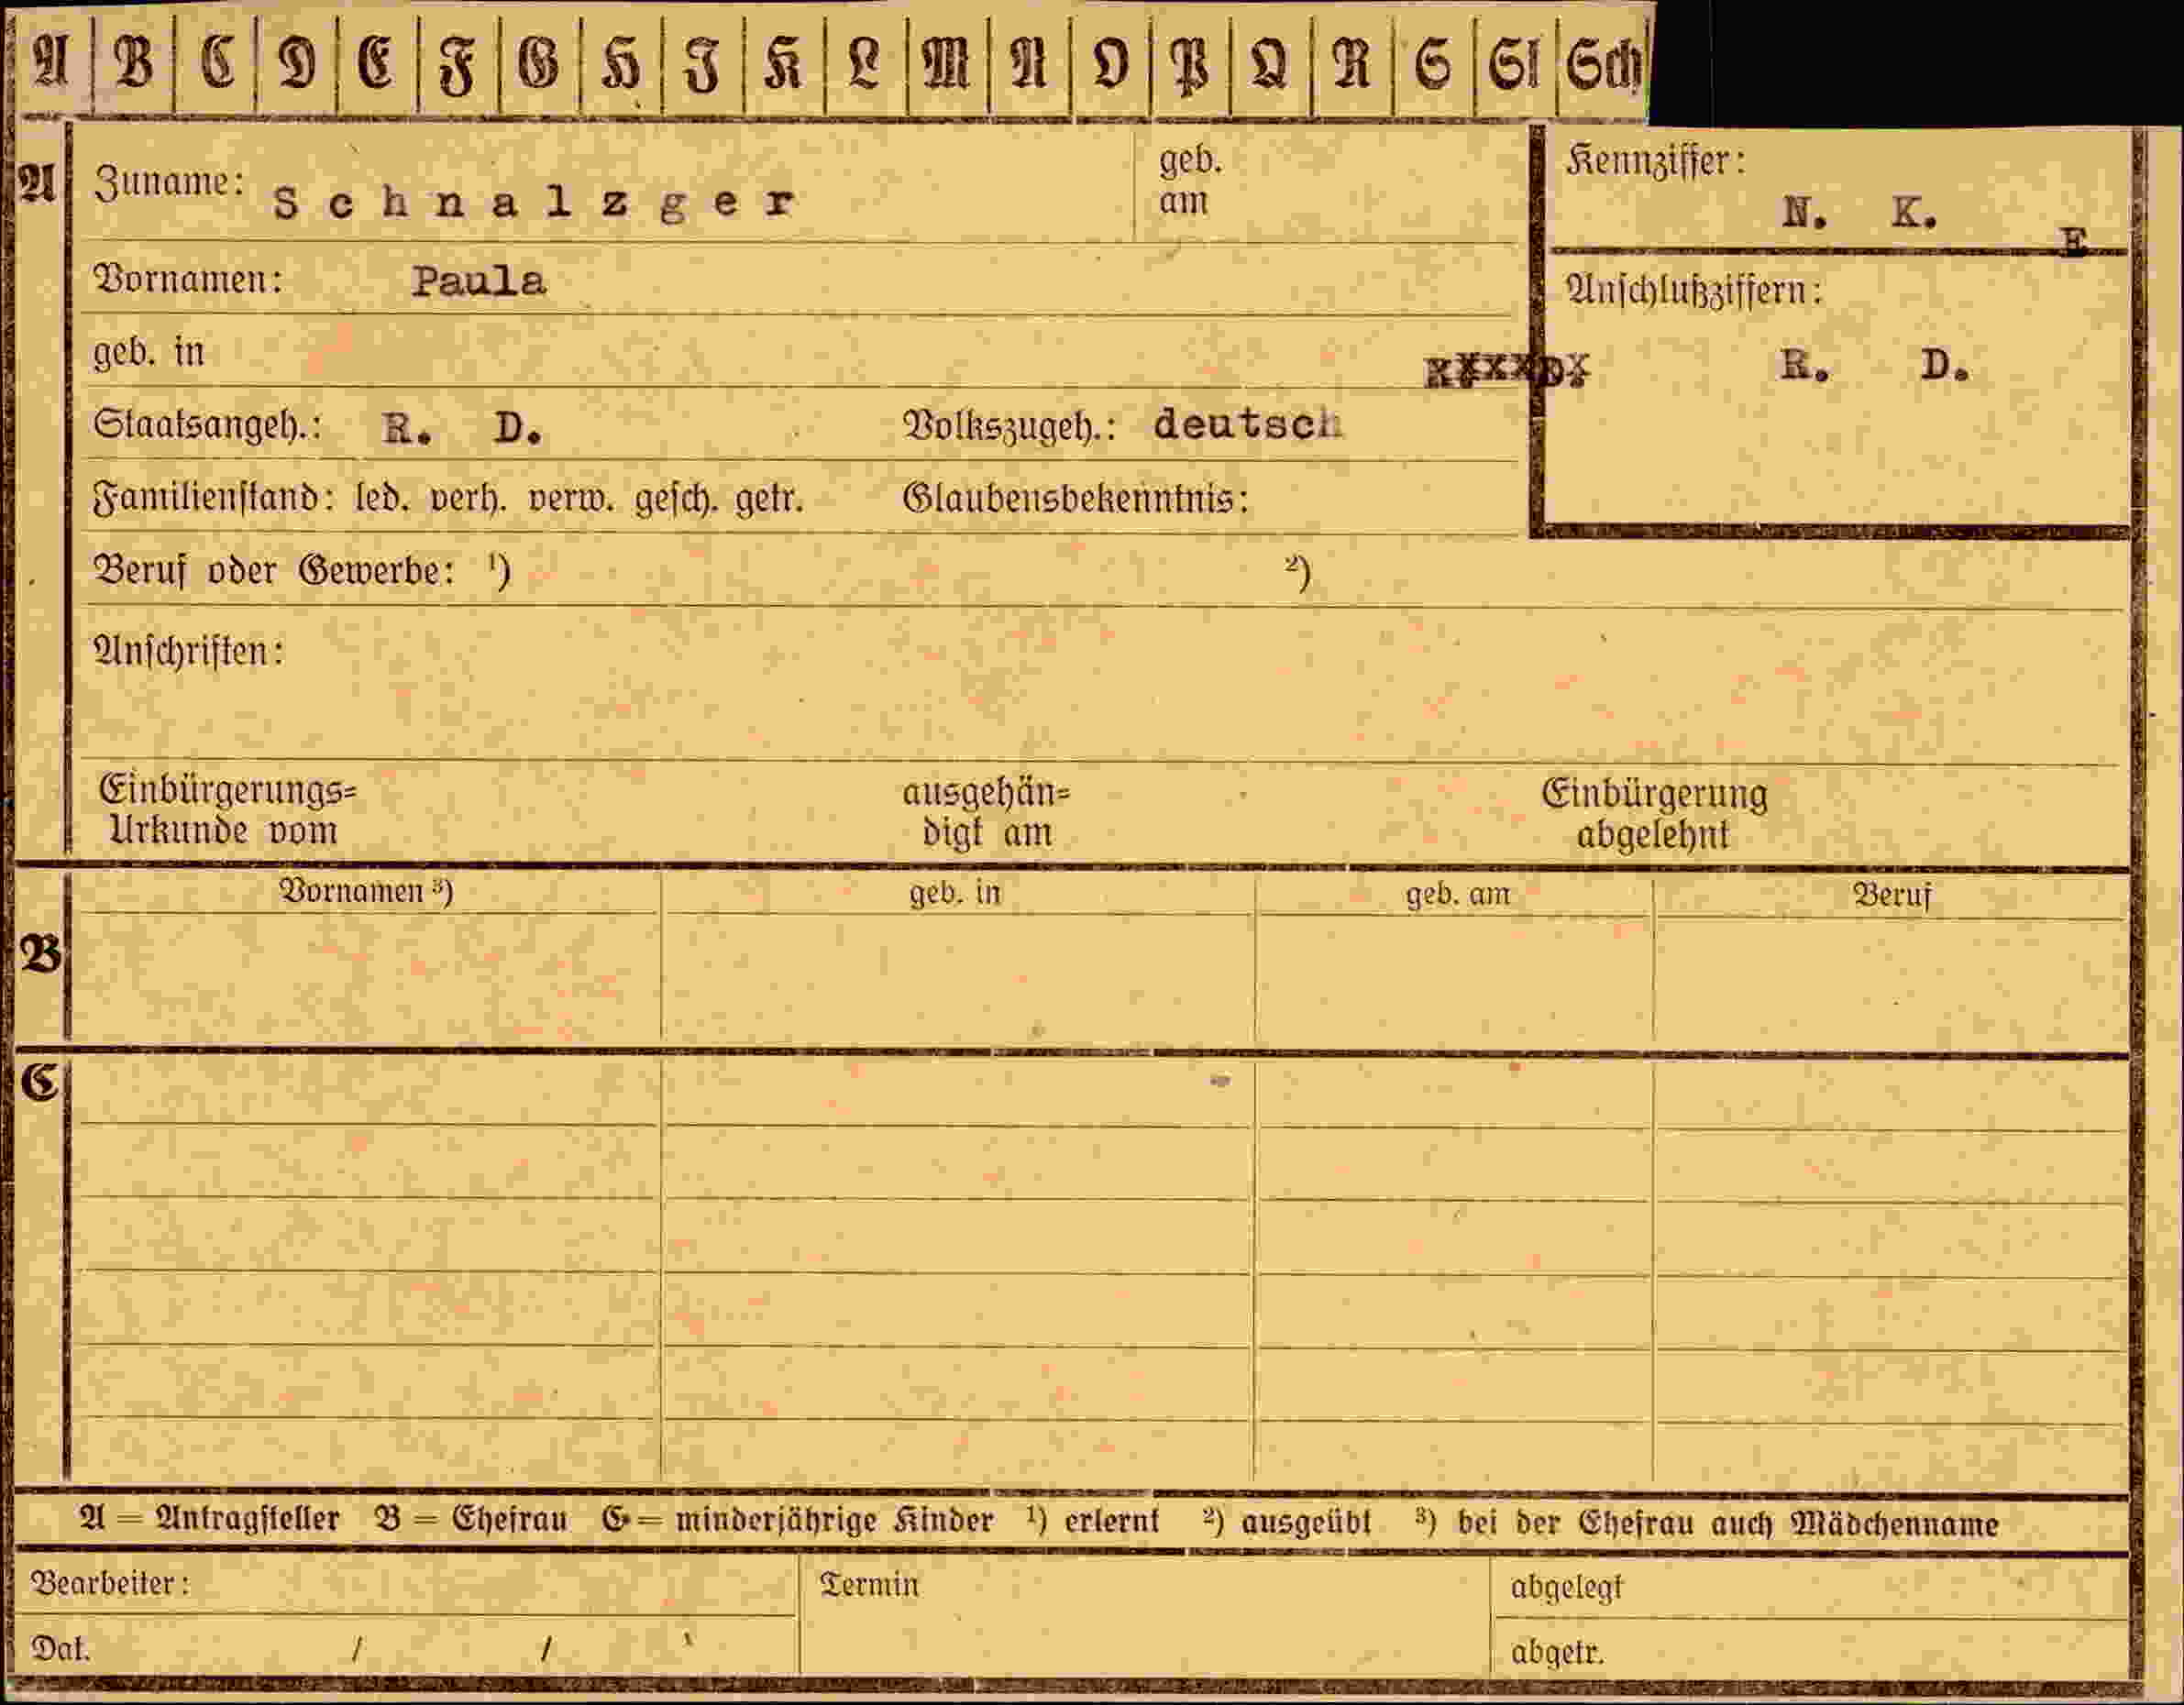 A B C D E F G H I K L M N O P Q R S St Sch
A Zuname: Schnalzger geb. am
Kennziffer:
N. K. E
Vornamen: Paula
Anschlußziffern:
geb. in
R. D.
Staatsangeh.: R. D. Volkszugeh.: deutsch
Familienstand: led. verh. verw. gesch. getr. Glaubensbekenntnis:
Beruf oder Gewerbe: ¹) ²)
Anschriften:
Einbürgerungs= ausgehän= Einbürgerung
Urkunde vom digt am abgelehnt
B Vornamen ³) geb. in geb. am Beruf
C
A = Antragsteller B = Ehefrau C = minderjährige Kinder ¹) erlernt ²) ausgeübt ³) bei der Ehefrau auch Mädchenname
Bearbeiter: Termin abgelegt
Dat. / / abgetr.